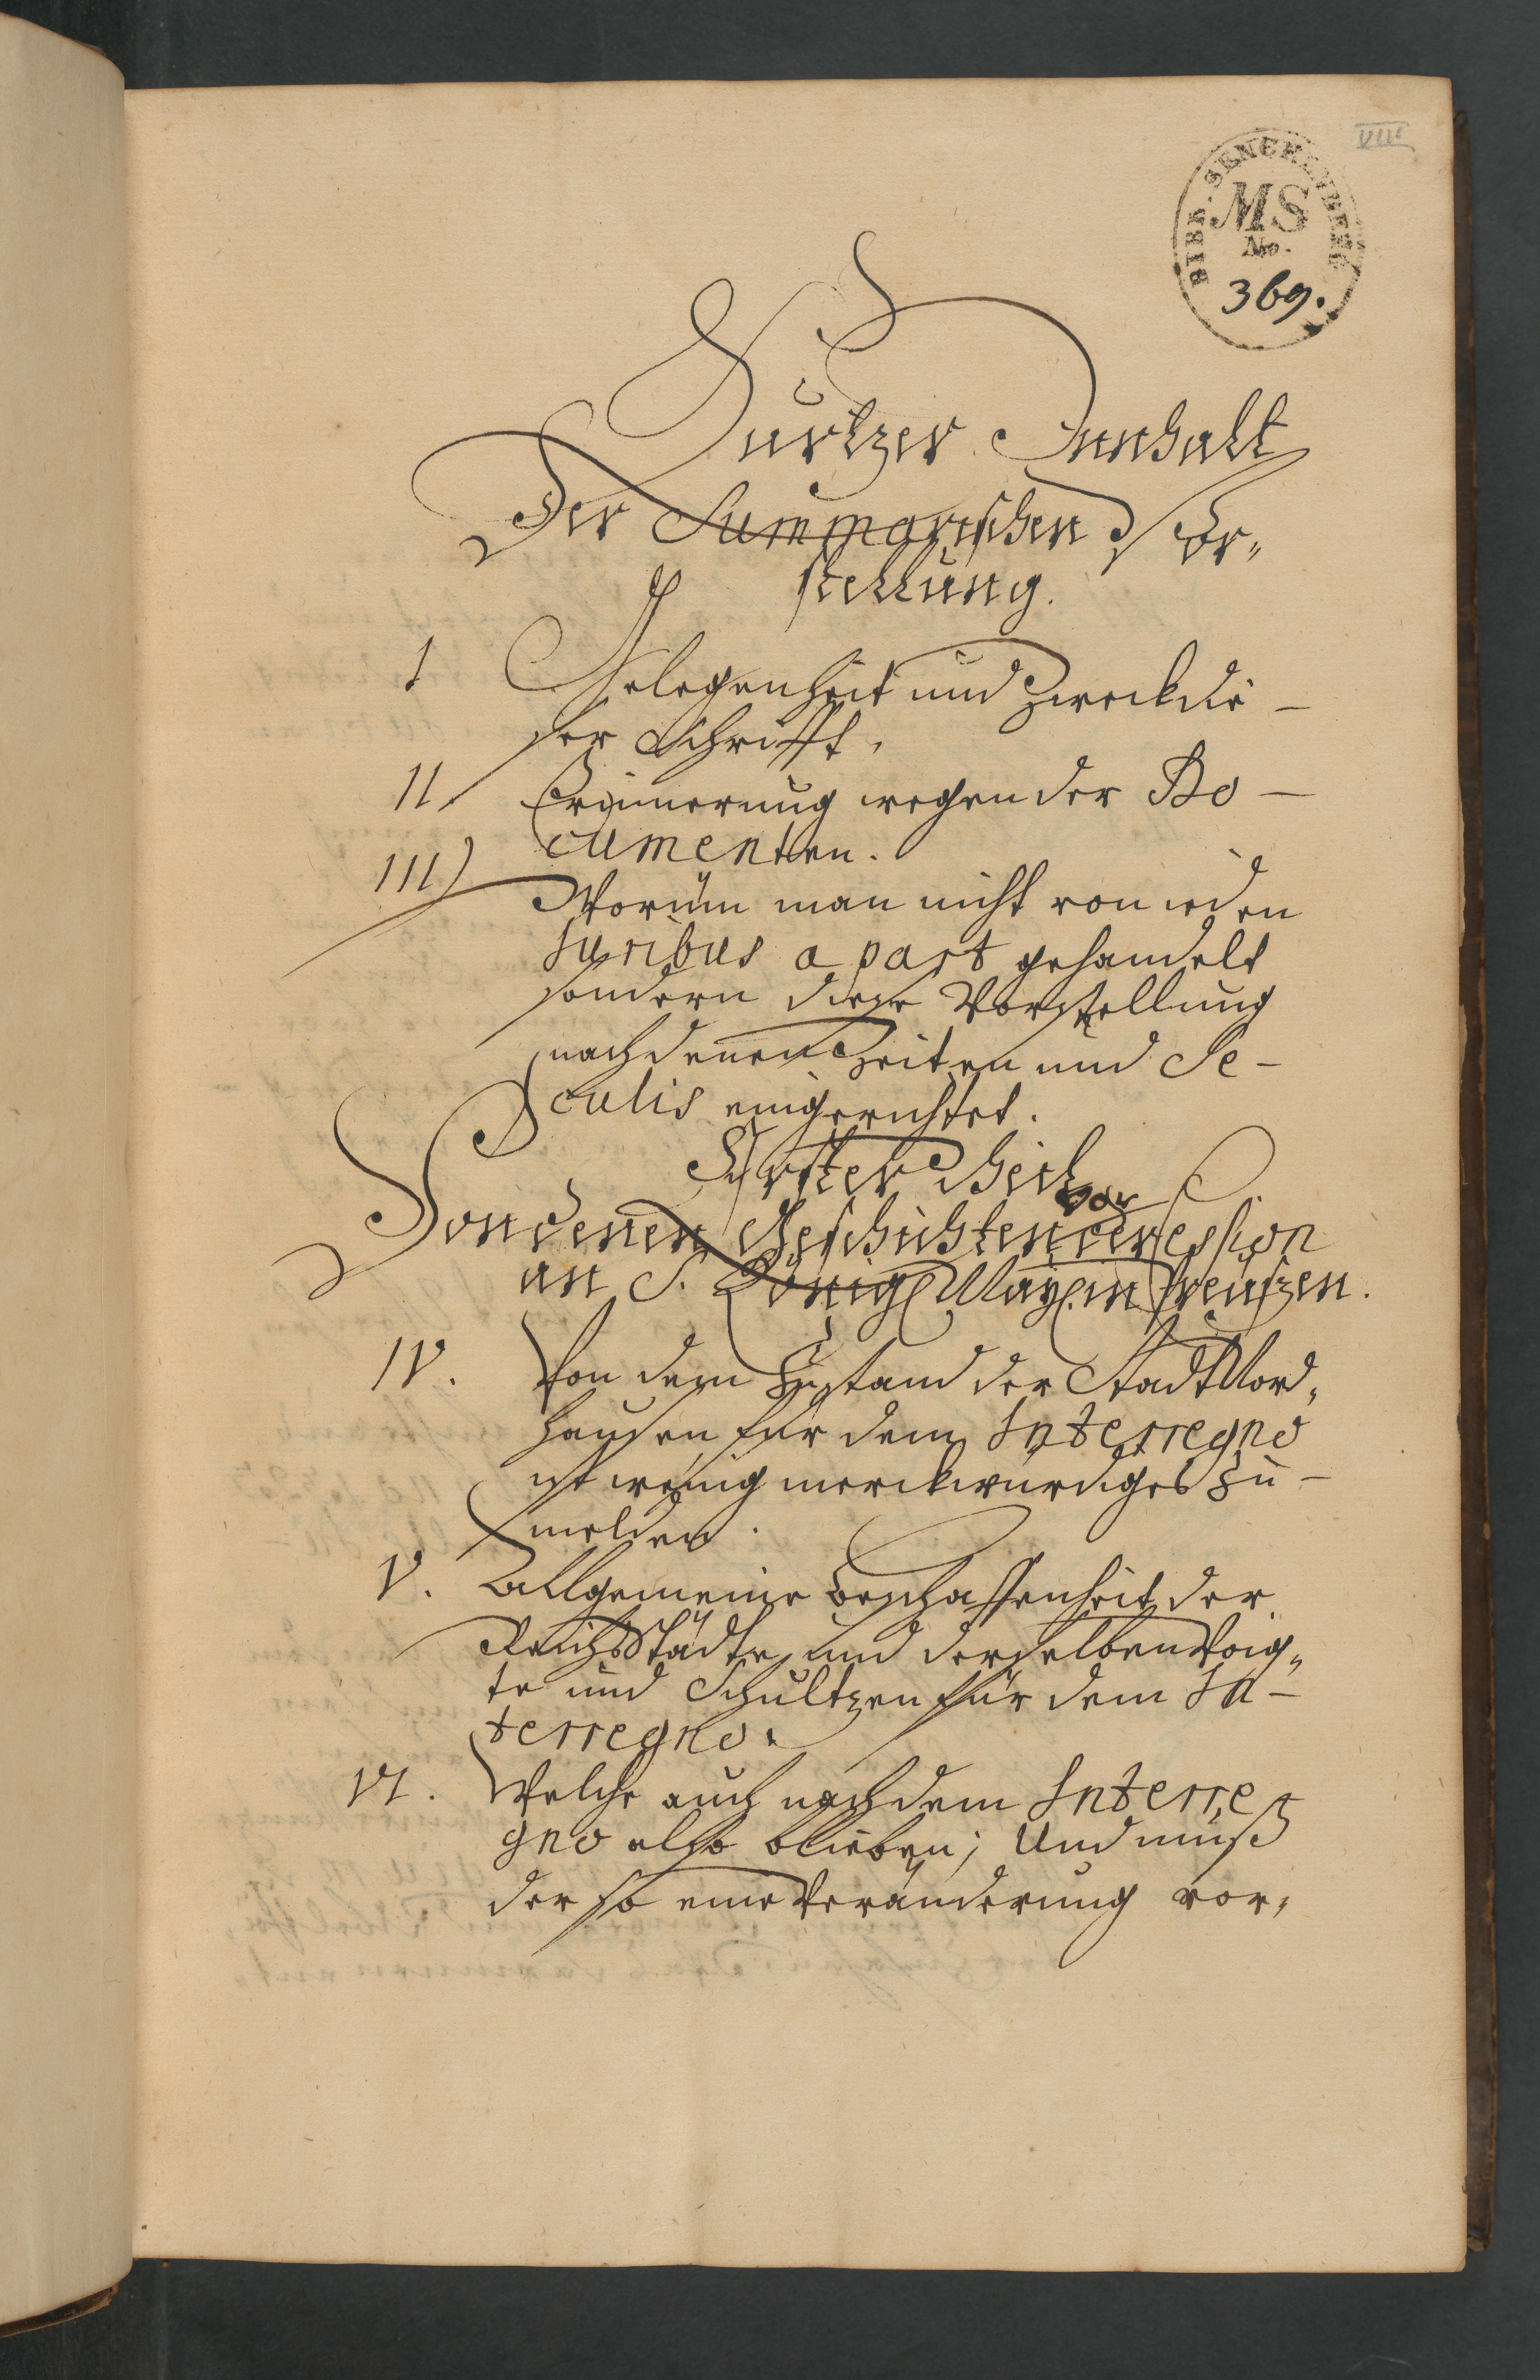 VIII
BIBL. SENCKENBERG
MS
No.
369.
Kurtzer Innhalt
Der Summarischen Vor„
stellung.
I Gelegenheit und Zweck die –
ser Schrifft.
II Erinnerung wegen der Do –
cumenten.
III) Warüm man nicht von ieden
Juribus a part gehandelt
sondern diese Vorstellung
nach denen Zeiten und Se –
culis eingerichtet.
Erster Theil
Von denen Geschichten vor der Cession
an S. Königl. Maj. in Preußen.
IV. Von dem Zustand der Stadt Nord„
hausen für dem Interregno
ist wenig merckwürdiges zu –
melden.
V. Allgemeine Beschaffenheit der
Reichs Städte, und derselben Voig„
te und Schultzen für dem In –
terregno.
VI. Welche auch nach dem Interre
gno also blieben; Und muß
der so eine Veränderung vor„